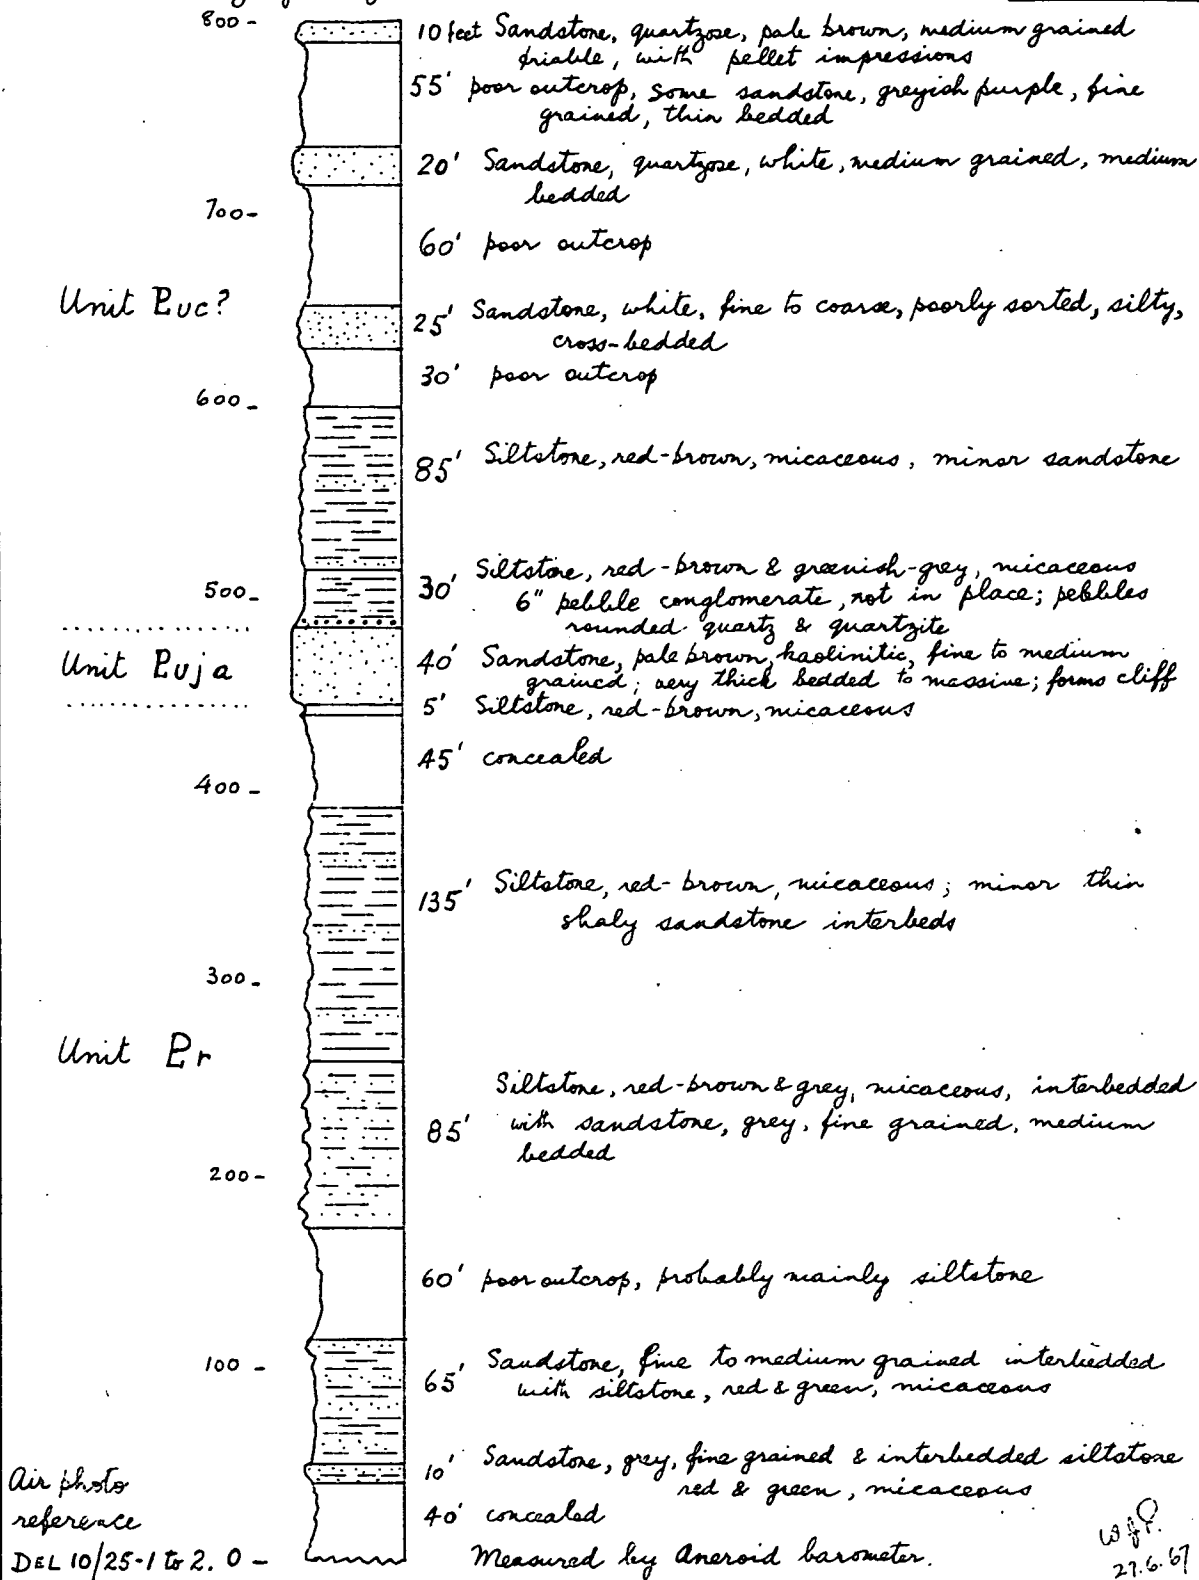 800 -
10 feet Sandstone, quartzose, pale brown, medium grained
friable, with pellet impressions
55' poor outcrop, some sandstone, greyish purple, fine
grained, thin bedded
20' Sandstone, quartzose, white, medium grained, medium
bedded
700 -
60' poor outcrop
Unit Puc?
25' Sandstone, white, fine to coarse, poorly sorted, silty,
cross-bedded
30' poor outcrop
600 -
85' Siltstone, red-brown, micaceous, minor sandstone
30' Siltstone, red-brown & greenish-grey, micaceous
500 -
6" pebble conglomerate, not in place; pebbles
rounded quartz & quartzite
Unit Puja
40' Sandstone, pale brown, kaolinitic, fine to medium
grained; very thick bedded to massive; forms cliff
5' Siltstone, red-brown, micaceous
45' concealed
400 -
135' Siltstone, red-brown, micaceous; minor thin
shaly sandstone interbeds
300 -
Unit Pr
85' Siltstone, red-brown & grey, micaceous, interbedded
with sandstone, grey, fine grained, medium
bedded
200 -
60' poor outcrop, probably mainly siltstone
100 -
65' Sandstone, fine to medium grained interbedded
with siltstone, red & green, micaceous
10' Sandstone, grey, fine grained & interbedded siltstone
red & green, micaceous
40' concealed
Air photo
reference
DEL 10/25-1 to 2. 0 -
Measured by Aneroid barometer.
27.6.67